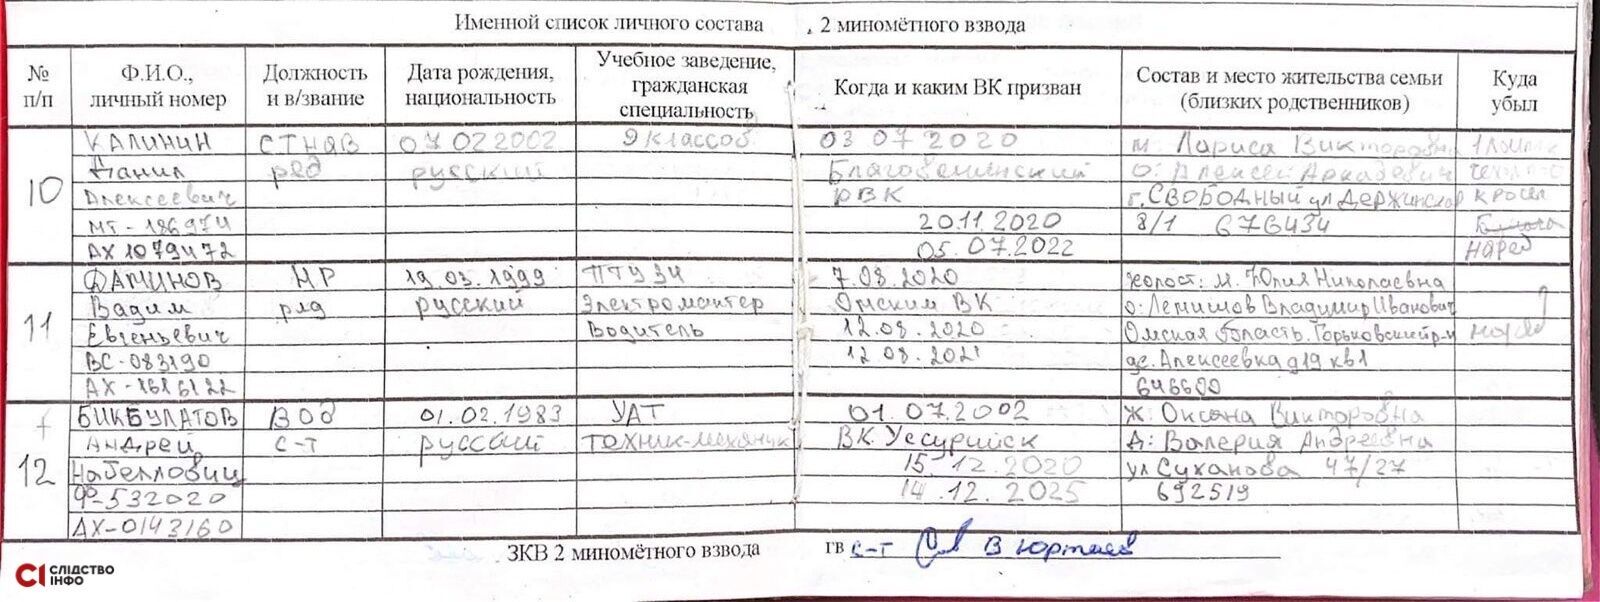 Именной список личного состава , 2 миномётного взвода
№ п/п
Ф.И.О., личный номер
Должность и в/звание
Дата рождения, национальность
Учебное заведение, гражданская специальность
Когда и каким ВК призван
Состав и место жительства семьи (близких родственников)
Куда убыл
10
КАЛИНИН СТНАВ 07 02 2002 9 классов 03 07 2020 м: Лариса Викторовна
Данил ряд русский Благовещинский о: Алексей Аркадевич
Алексеевич РВК г. СВОБОДНЫЙ ул Держинског
МТ-186974 20.11.2020 8/1 676434
АХ 1079472 05.07.2022 наряд
11
ФАМИНОВ НР 19.03.1999 ПТУ 34 7.08.2020 холост: м. Юлия Николаевна
Вадим ряд русский Электромонтер Омским ВК о: Лемишов Владимир Иванович
Евгеньевич Водитель 12.08.2020 Омская область. Горьковский р-н наряд
ВС-083190 12 08.2021 дс. Алексеевка д19 кв1
АХ-1616122
12
БИКБУЛАТОВ ВОд 01.02.1983 УАТ 01.07.2002 Ж: Оксана Викторовна
Андрей с-т русский техник-механик ВК Уссурийск Д: Валерия Андреевна
Наделлович 15.12.2020 ул Суханова 47/27
Ф-532020 14.12.2025 692519
АХ-0143160
ЗКВ 2 миномётного взвода гв с-т В Юртаев
СІ СЛІДСТВО ІНФО